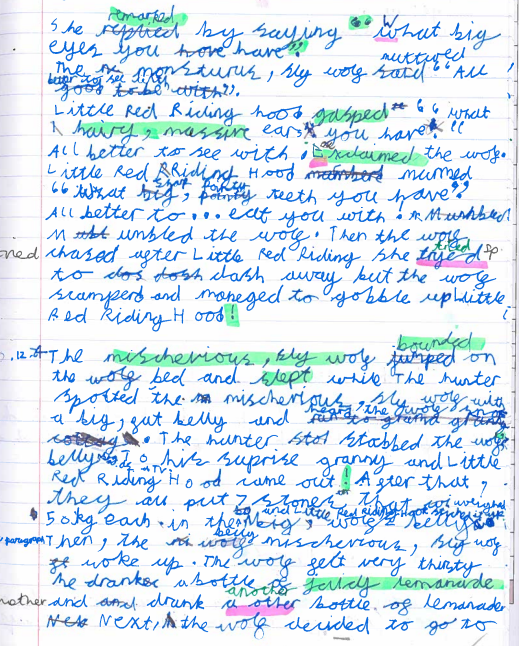 remarked
She replied by saying “What big
eyes you have have”.
nuttured
The monsturus, sly wolf said “All
beter to see with
good to be with”.
Little Red Riding hood gasped “What
hairy, massive ears you have”
All better to see with. Exclaimed the wolf.
Little Red Riding Hood mumbled mumed
shap pointy
“What big, pointy teeth you have?”
All better to... eat you with. Mumbled
Mumbled the wolf. Then the wolf
chased after Little Red Riding she tryed
tried sp
to dash away but the wolf
scampers and maneged to gobble up Little
Red Riding Hood!
bounded
The mischevious, sly wolf jumped on
the wolf bed and slept while The hunter
spotted the mischevious, sly wolf with
a big, fat belly and
The hunter stabbed the wolf
belly. To his suprise granny and Little
Red Riding Hood came out! After that,
they all put 7 stones that
and Little Red Riding Hood
50kg each in the big, wolf's belly.
belly
paragraph Then, the mischevious, sly wolf
woke up. The wolf felt very thirsty
he dranke a bottle of fally lemanade
another
and and drank a other bottle of lemanade
Next, the wolf decided to go to